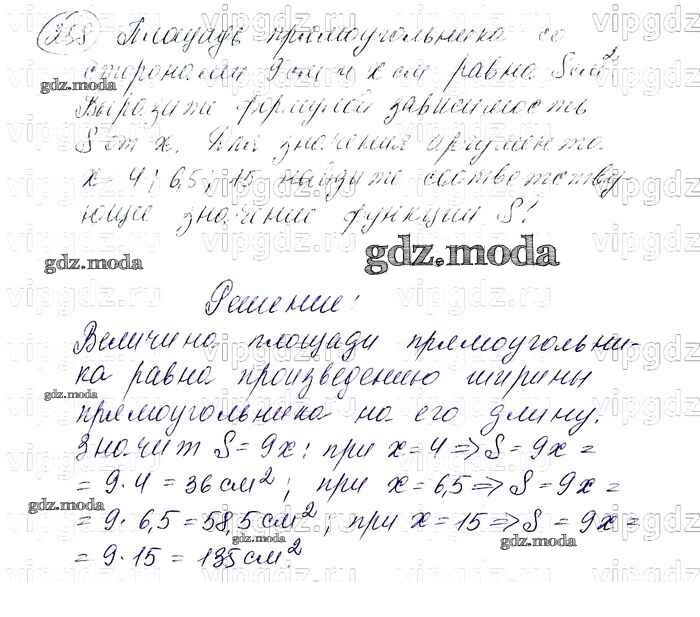 258 Площадь прямоугольника со
сторонами 9 см и x см равна S см²
Выразите формулой зависимость
S от x. Для значения аргумента
x = 4; 6,5; 15 найдите соответству-
ющие значение функции S!
gdz.moda
gdz.moda
gdz.moda
Решение:
Величина площади прямоугольни-
ка равна произведению ширины
прямоугольника на его длину.
gdz.moda
Значит S = 9x; при x = 4 => S = 9x =
= 9 · 4 = 36 см²; при x = 6,5 => S = 9x =
gdz.moda
= 9 · 6,5 = 58,5 см²; при x = 15 => S = 9x =
gdz.moda gdz.moda
= 9 · 15 = 135 см².